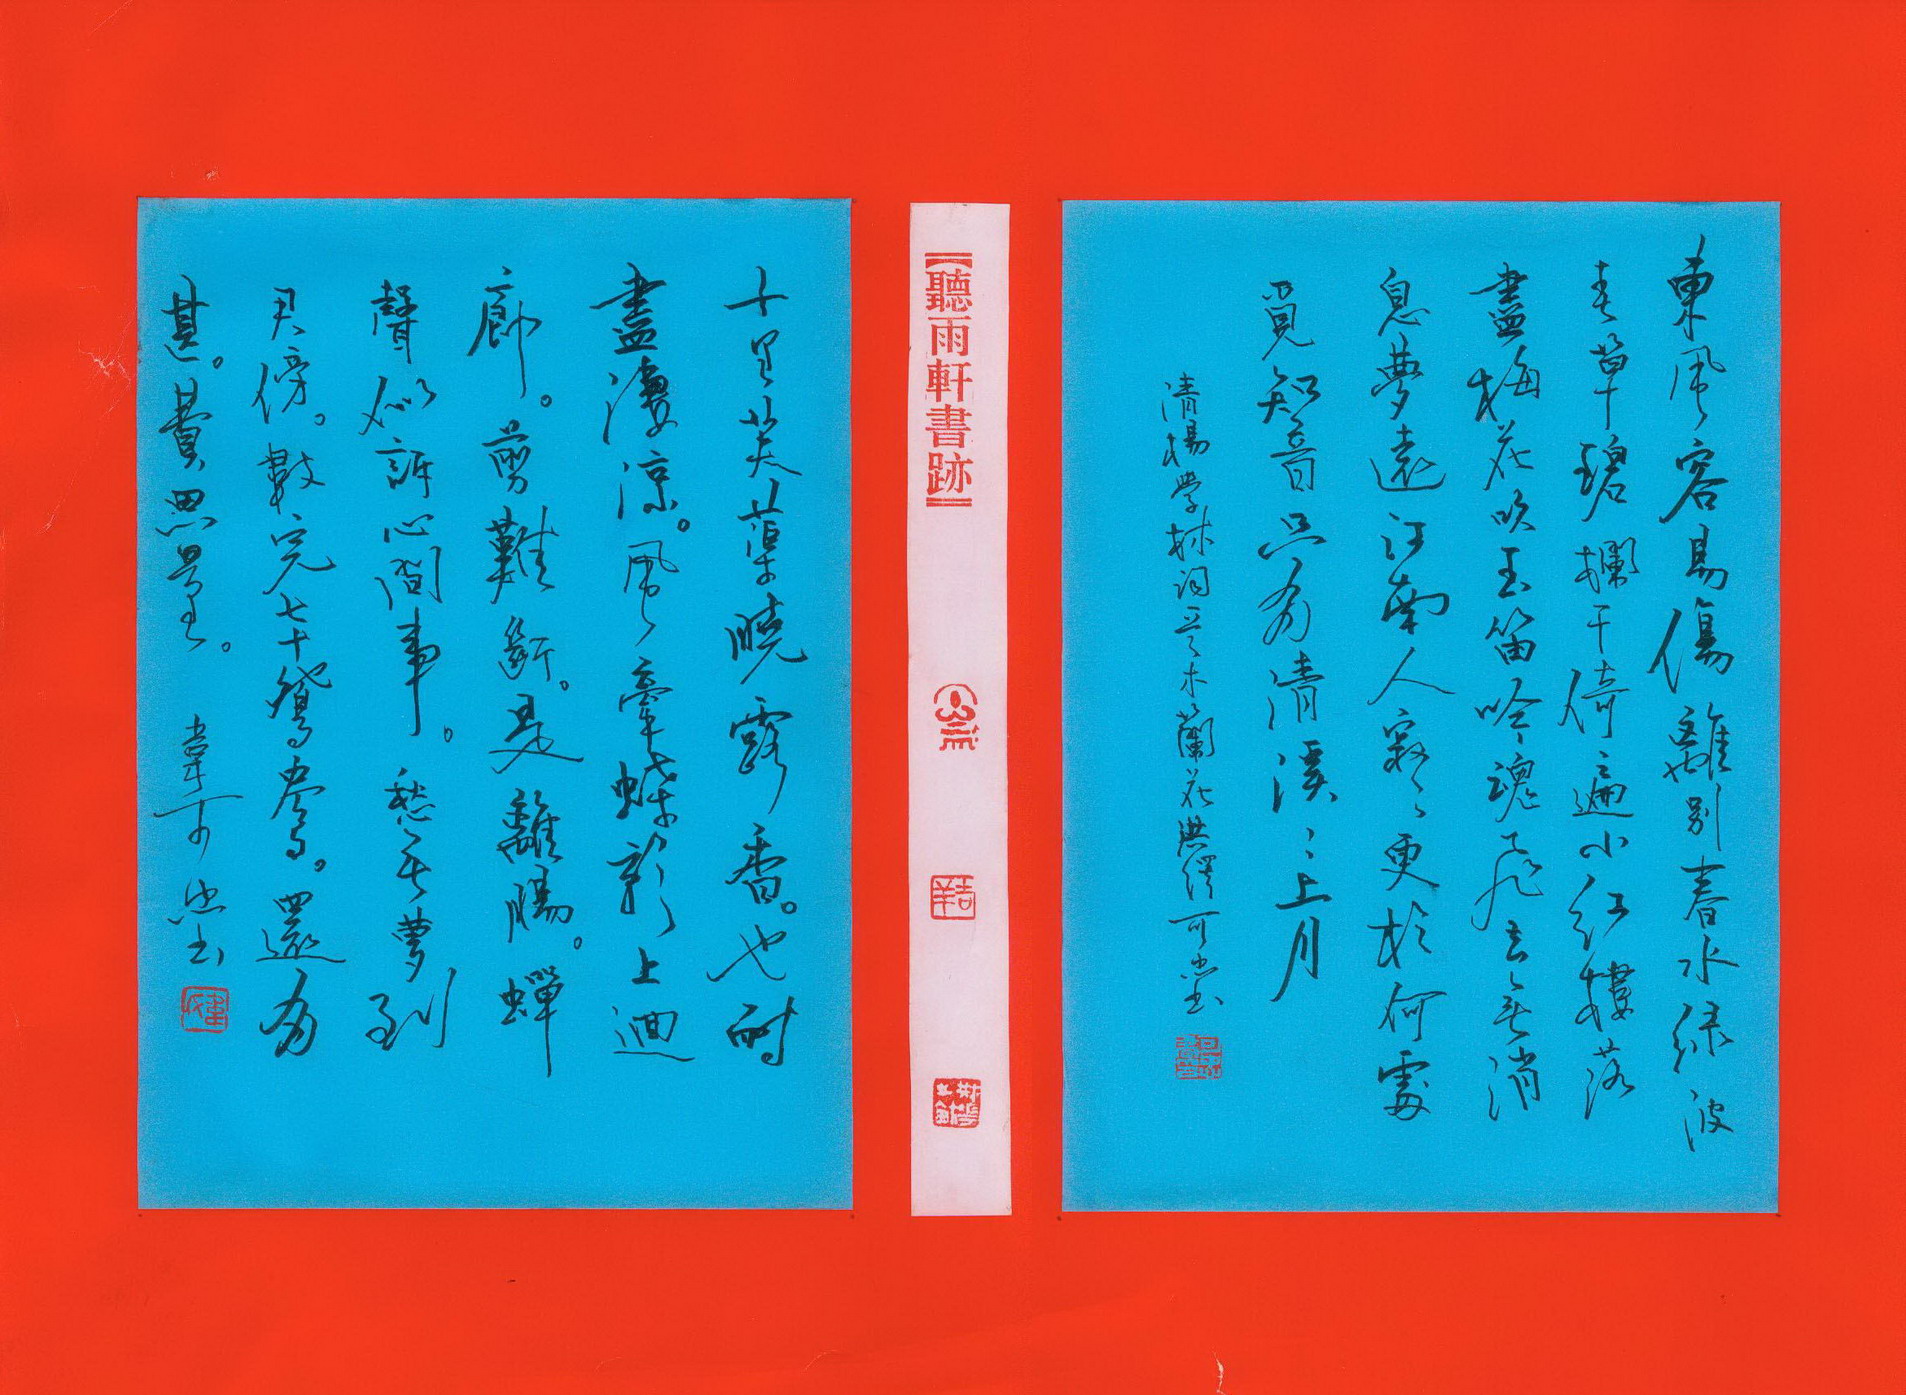 東風容易傷離別春水綠波
春草碧欄干倚遍小紅樓落
盡梅花吹玉笛吟魂飛去無消
息夢遠江南人寂寂更於何處
覓知音只有清溪溪上月
清楊學林詞 木蘭花 可忠書
【聽雨軒書跡】
十里芙蕖曉露香。也耐
盡淒涼。風牽蝶影上迴
廊。剪難斷。是離腸。蟬
聲似訴心間事。愁無夢到
君傍。數完七十鴛鴦。還有
甚。費思量。
韋可忠書